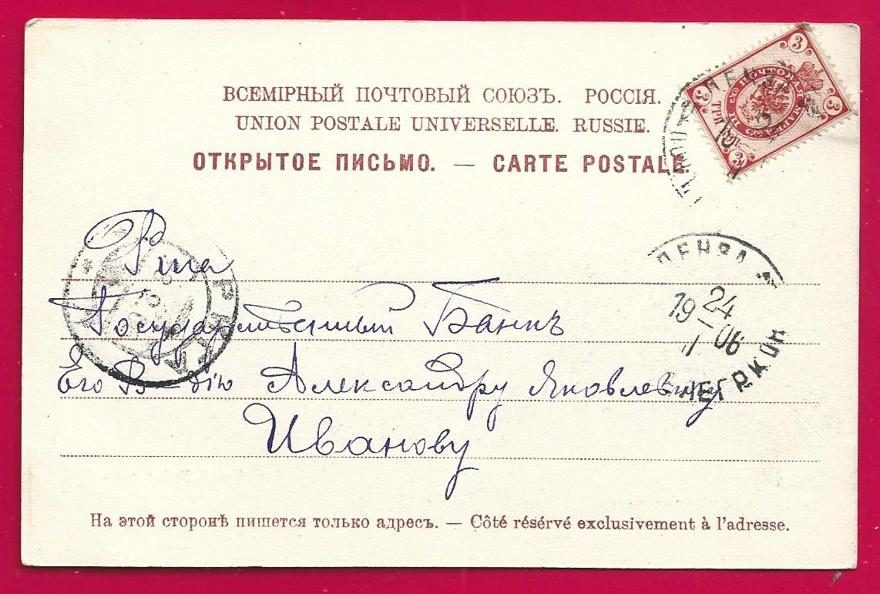 ВСЕМІРНЫЙ ПОЧТОВЫЙ СОЮЗЪ. РОССІЯ.
UNION POSTALE UNIVERSELLE. RUSSIE.
ОТКРЫТОЕ ПИСЬМО. — CARTE POSTALE
3
3
3
3
ТРИ
Рига
РИГА
ПЕНЗА
24
19 06
1
Государственный Банкъ
Его В-дію Александру Яковлевичу
Иванову
На этой сторонѣ пишется только адресъ. — Côté résérvé exclusivement à l'adresse.